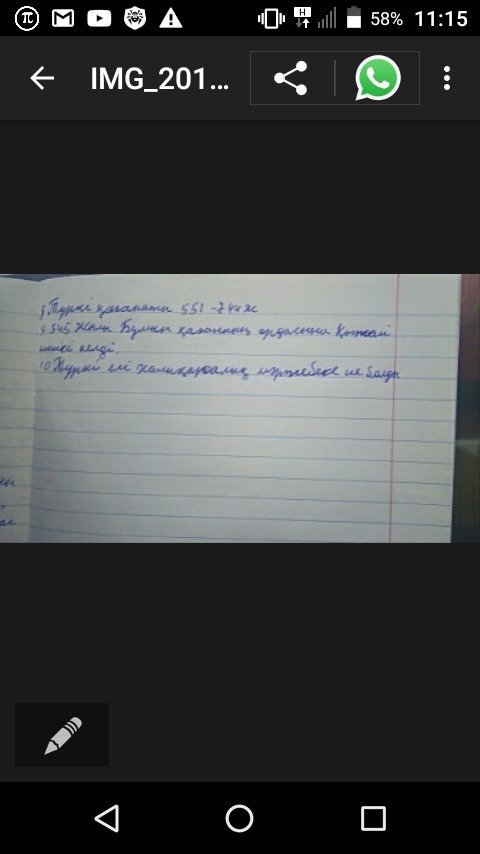 58% 11:15
IMG_201...
Түркі қағанаты 551-744ж
9. 545 жылы Бумын қағанның ордасына Қытай
елшісі келді.
10 Түркі елі халықаралық мәртебеге ие болды